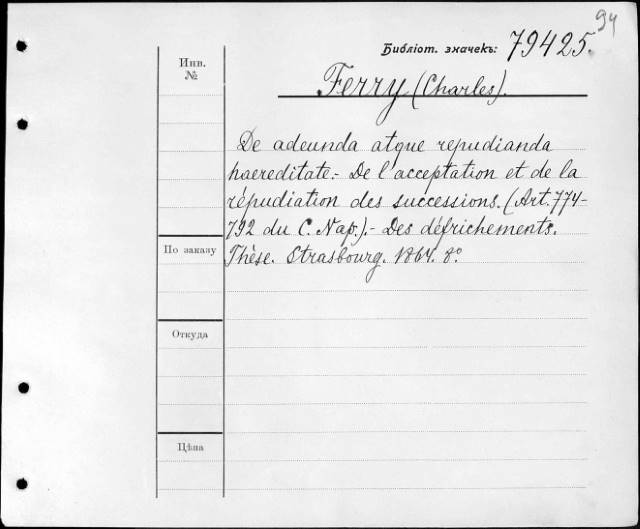 94
Библіот. значекъ: 79425.
Инв.
№
Ferry (Charles).
De adeunda atque repudianda
haereditate.- De l'acceptation et de la
répudiation des successions. (Art. 774-
792 du C. Nap.).- Des défrichements.
По заказу
Thèse. Strasbourg. 1864. 8°.
Откуда
Цѣна